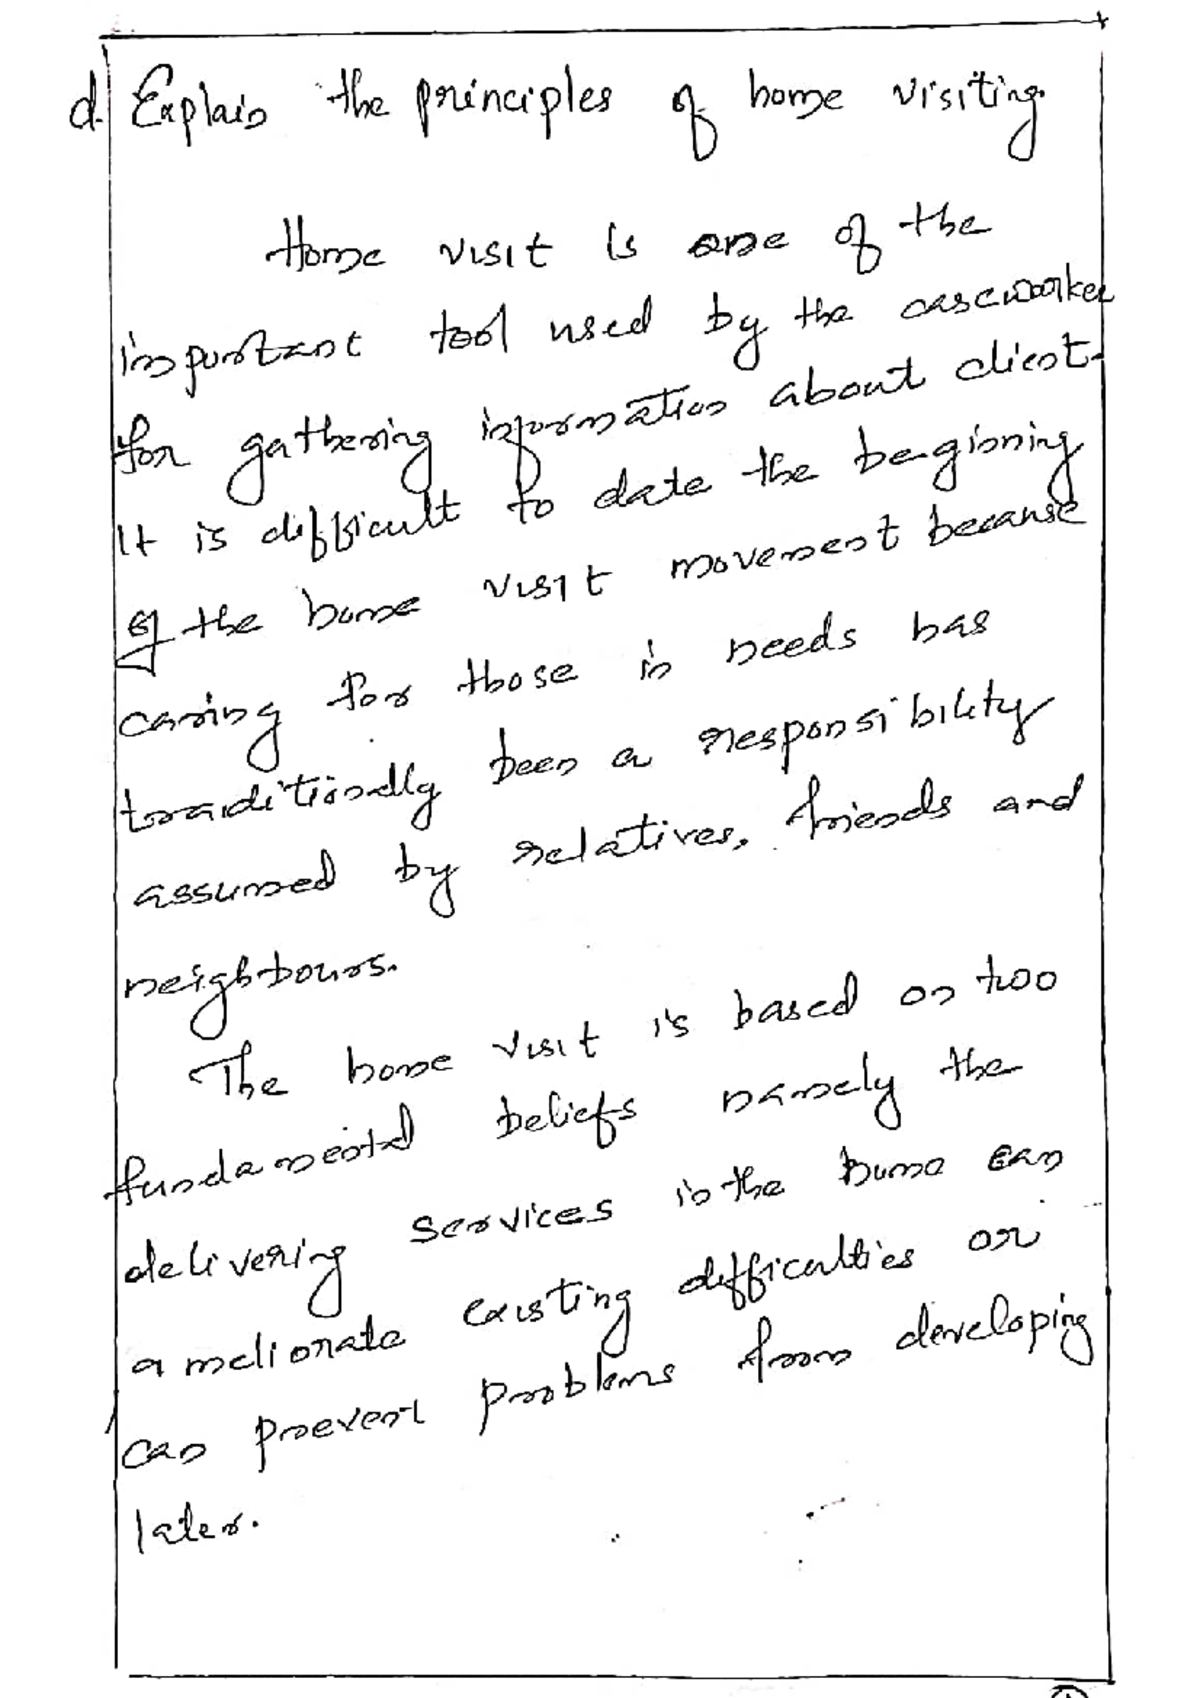 d. Explain the principles of home visiting.
Home visit is one of the
important tool used by the caseworker
for gathering information about client.
It is difficult to date the beginning
of the home visit movement because
caring for those in needs has
traditionally been a responsibility
assumed by relatives, friends and
neighbours.
The home visit is based on two
fundamental beliefs namely the
delivering services in the home can
ameliorate existing difficulties or
can prevent problems from developing
later.